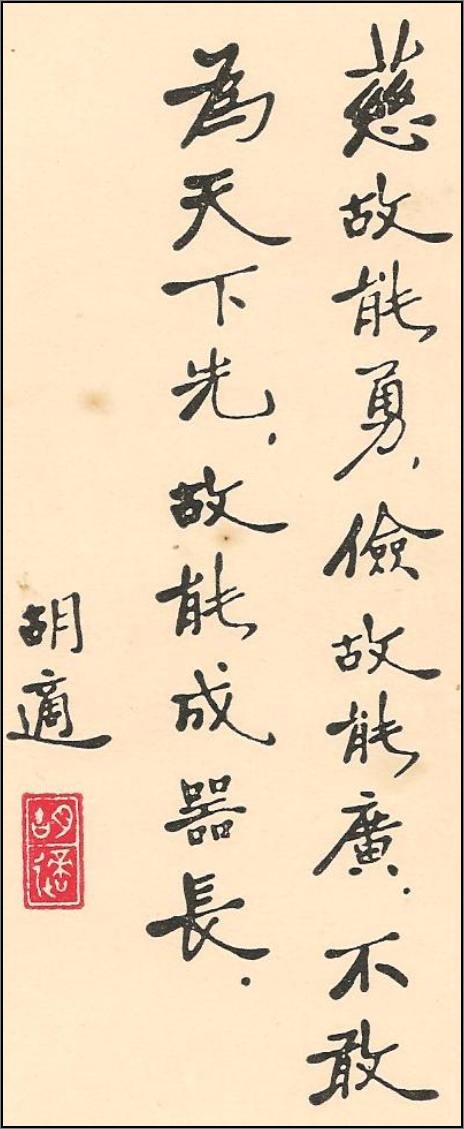 慈故能勇,儉故能廣.不敢
為天下先,故能成器長.
胡適
胡適